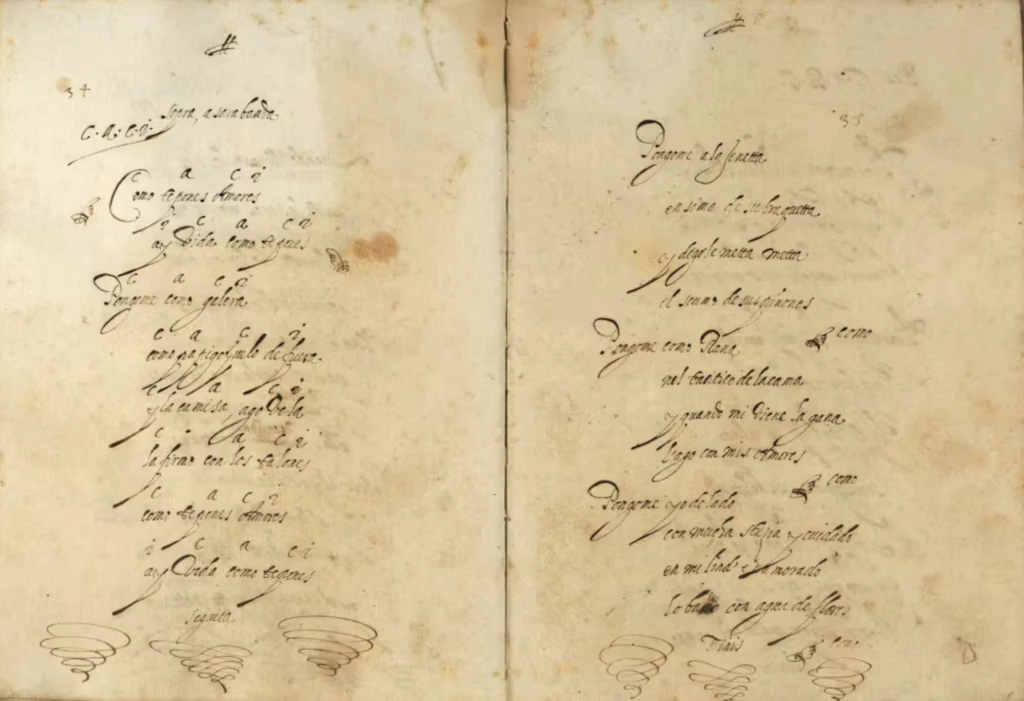 34
sopra, a sarabanda
C. A. C. i.
c a c i
Como te pones Amores
i c a c i
ay Vida como te pones
c a c i
Pongome como galera
c a c i
como de fuera
a c i
y la camisa, ago vela
c a c i
la firmo con los talones
c a c i
como te pones Amores
i c a c i
ay Vida como te pones
seguita
35
Pongome a la Jenetta
ensima de su braguetta
y dego le metta metta
el sumo de sus piñones
como
Pongome como Rana
nel cantico de la cama
y quando mi viene la gana
lago con mis Amores
como
Pongome yo de lado
con mucha stuzia y cuidado
en mi enamorado
lo baño con agua de flores
Finis como